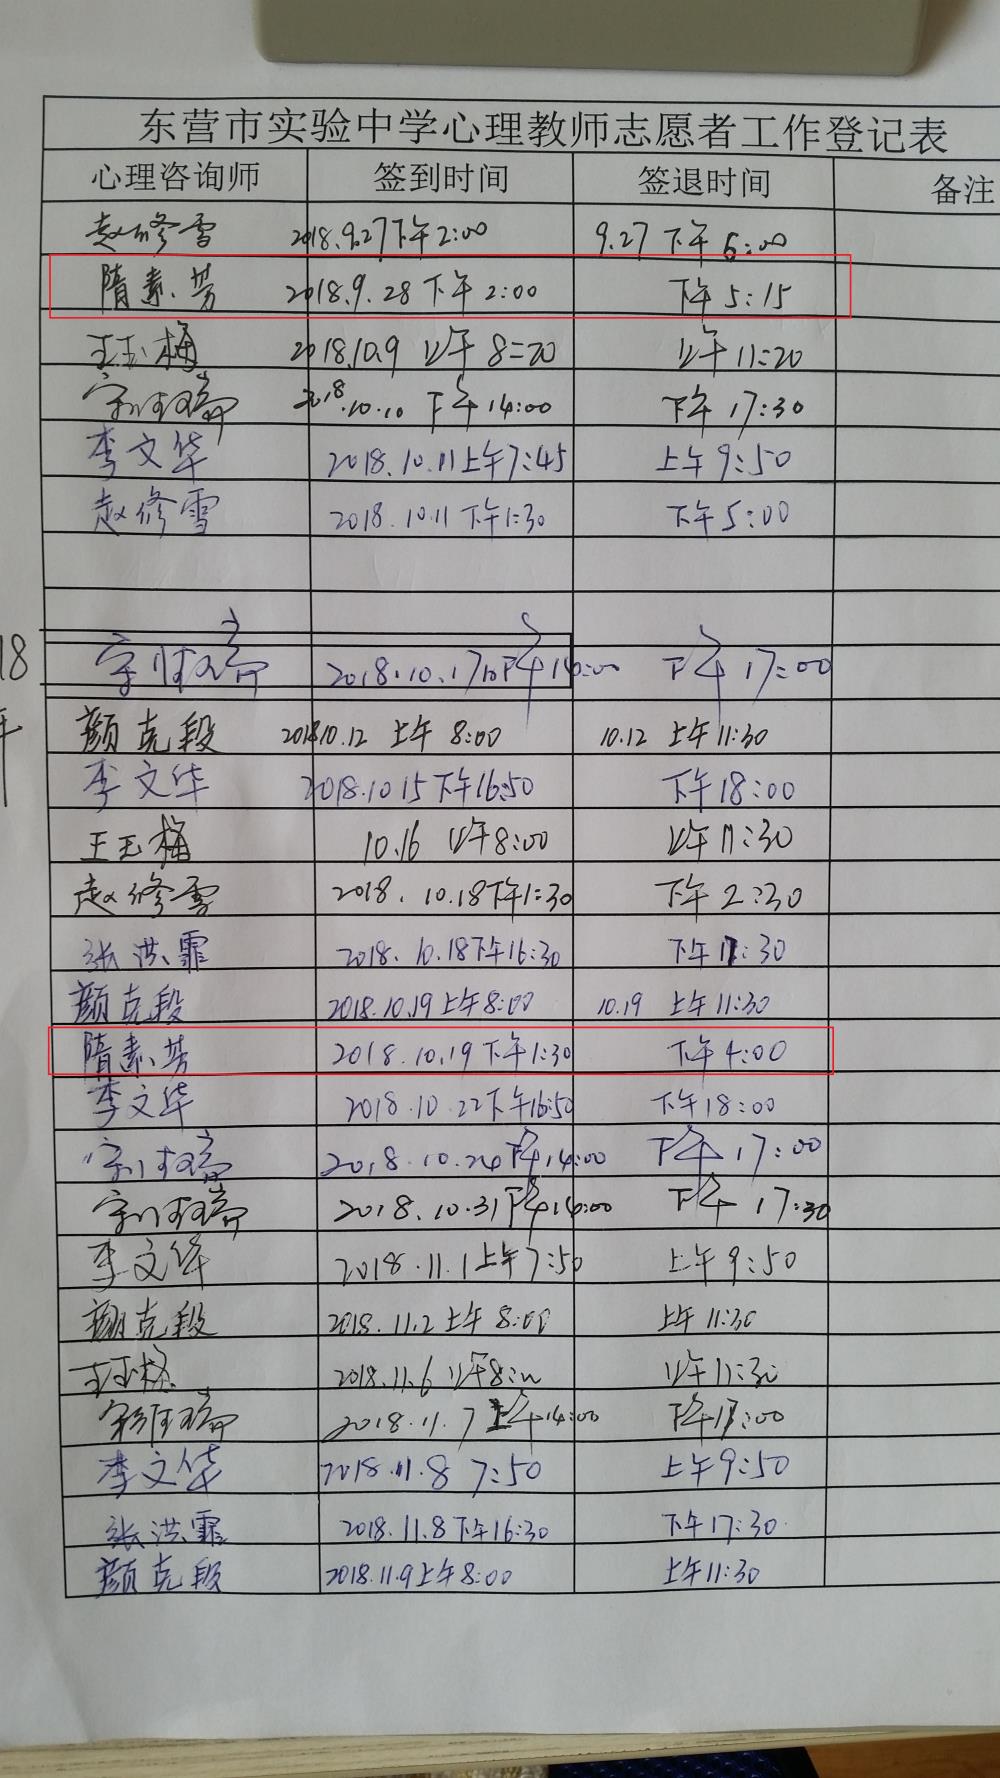 东营市实验中学心理教师志愿者工作登记表
心理咨询师 签到时间 签退时间 备注
赵修雪 2018.9.27下午2:00 9.27 下午 6:00
隋素芳 2018.9.28 下午 2:00 下午 5:15
王玉梅 2018.10.9 上午 8:20 上午 11:20
2018.10.10 下午 14:00 下午 17:30
李文华 2018.10.11上午7:45 上午 9:50
赵修雪 2018.10.11 下午1:30 下午 5:00
18
2018.10.17 下午 14:00 下午 17:00
颜克段 2018 10.12 上午 8:00 10.12 上午 11:30
李文华 2018.10 15 下午16:50 下午18:00
王玉梅 10.16 上午8:00 上午 11:30
赵修雪 2018.10.18下午1:30 下午 2:30
张洪霏 2018.10.18下午16:30 下午 17:30
颜克段 2018.10.19上午8:00 10.19 上午11:30
隋素芳 2018.10.19 下午1:30 下午 4:00
李文华 2018.10.22下午16:50 下午18:00
2018.10.24 下午14:00 下午 17:00
2018.10.31 下午14:00 下午 17:30
李文华 2018.11.1 上午7:50 上午 9:50
颜克段 2018.11.2 上午 8:00 上午 11:30
王玉梅 2018.11.6 上午8:00 上午11:30
2018.11.7 下午14:00 下午17:00
李文华 2018.11.8 7:50 上午9:50
张洪霏 2018.11.8下午16:30 下午17:30
颜克段 2018.11.9上午8:00 上午11:30